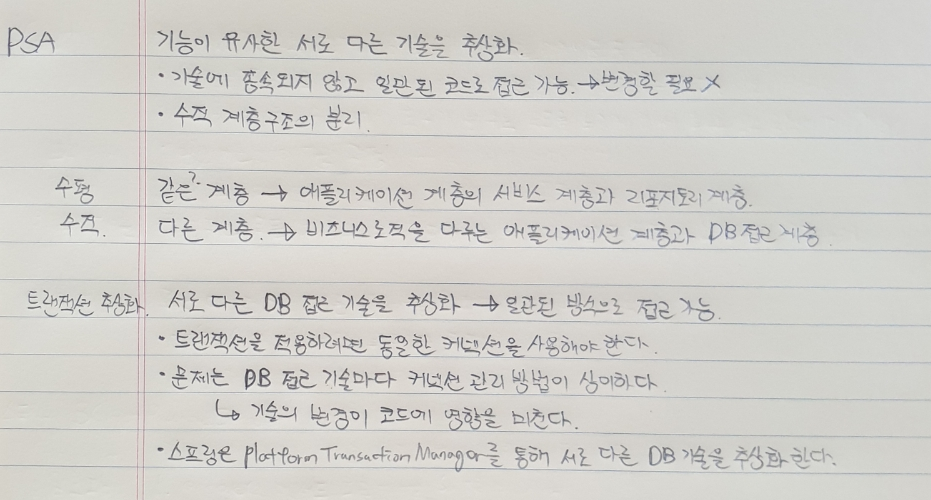 PSA 기능이 유사한 서로 다른 기술을 추상화.
· 기술에 종속되지 않고 일관된 코드로 접근 가능. → 변경할 필요 X
· 수직 계층구조의 분리.
수평 같은? 계층 → 애플리케이션 계층의 서비스 계층과 리포지토리 계층.
수직. 다른 계층. → 비즈니스로직을 다루는 애플리케이션 계층과 DB 접근 계층
트랜잭션 추상화. 서로 다른 DB 접근 기술을 추상화 → 일관된 방식으로 접근 가능.
· 트랜잭션을 적용하려면 동일한 커넥션을 사용해야 한다.
· 문제는 DB 접근 기술마다 커넥션 관리 방법이 상이하다.
↳ 기술의 변경이 코드에 영향을 미친다.
· 스프링은 Platform Transaction Manager를 통해 서로 다른 DB 기술을 추상화 한다.